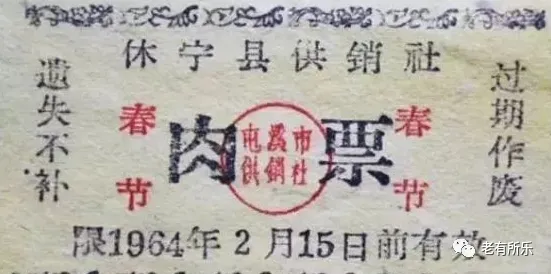 休宁县供销社
遗失不补
春节
肉票
屯溪市
供销社
春节
过期作废
限1964年2月15日前有效
老有所乐